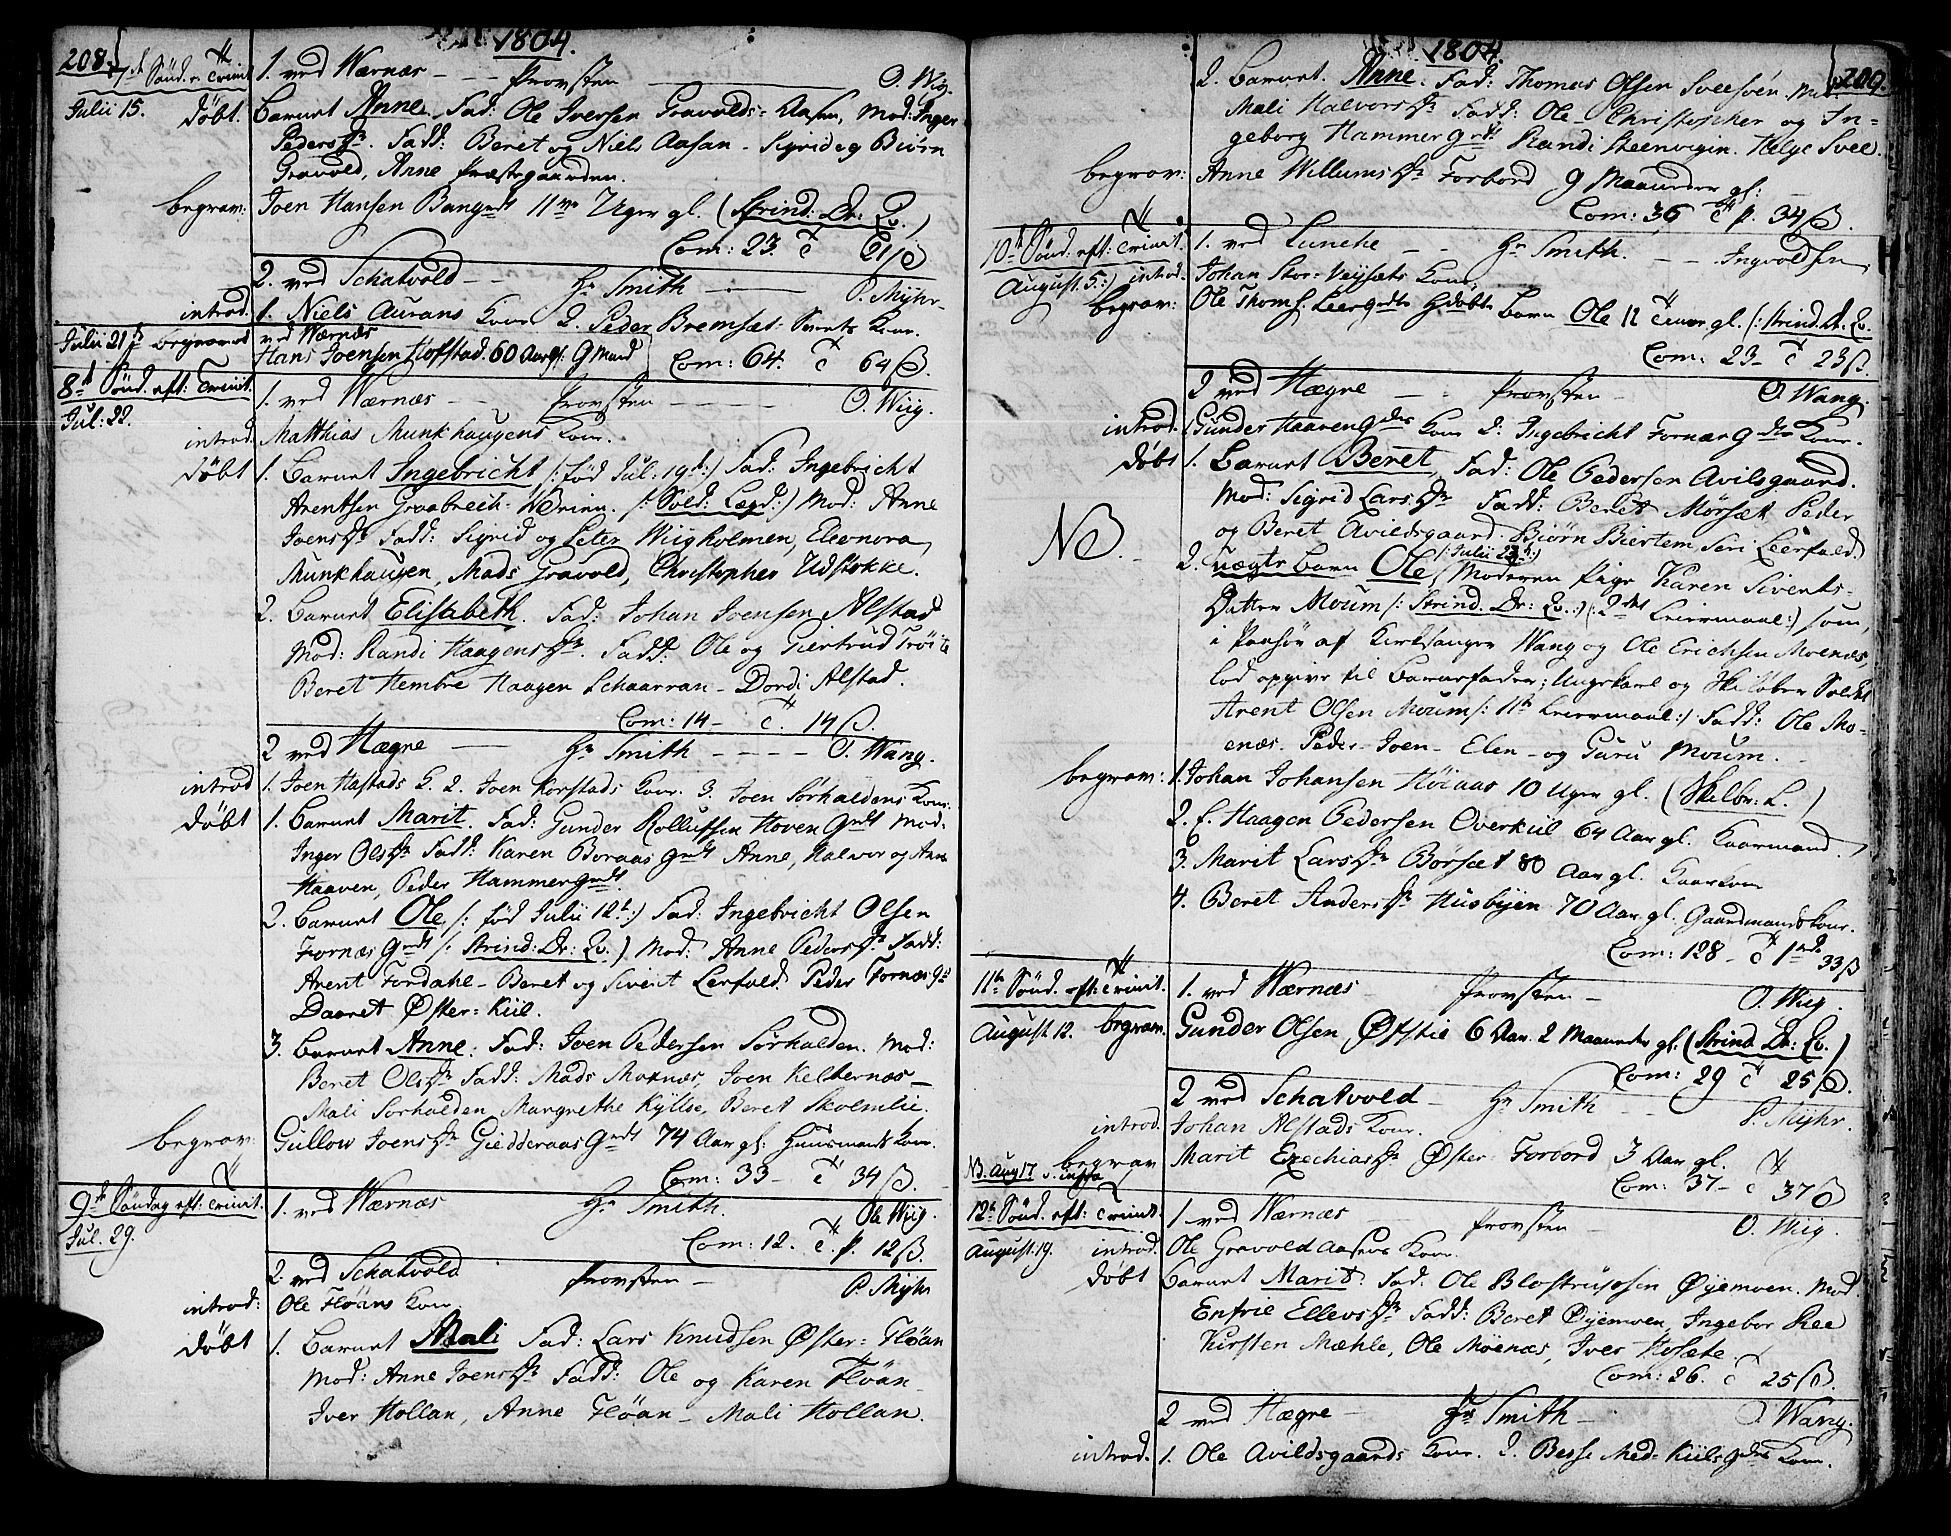 208.
1804.
7de Sönd. e. Trinit. 1. ved Wærnæs - - - Provsten - O. Wiig.
Julii 15. döbt. Barnet Anne. Fad: Ole Iversen Gravolds-Aasen, Mod: Inger
Peders D. Fadd: Beret og Niels Aasan - Sigrid og Biörn
Gravold, Anne Præstegaarden.
begrav: Joen Hansen Bangrdt 11ve Uger gl. (Strind: Dr: Qv.)
Com: 23. 21 ß
2. ved Schatvold - - Hr Smith - P. Myhr.
introd. 1. Niels Aurans Kone 2. Peder Bremsæt Kone.
Julii 21d begravet ved Wærnæs
Hans Joensen Hofstad. 60 Aar gl. Com: 64. 64 ß.
8d Sönd. eft: Trinit. 1. ved Wærnæs - Provsten - O. Wiig.
Jul: 22.
introd. Matthias Munkhaugens Kone.
döbt 1. Barnet Ingebricht /: fød Jul: 19d:/ Fad: Ingebricht
Arentsen Graabreck-Werinn. /: Sold: Lægd:/ Mod: Anne
Joens D. Fadd: Sigrid og Peter Wiigholmen, Eleonora
Munkhaugen, Mads Gravold, Christopher Udstokke.
2. Barnet Elisabeth. Fad: Johan Joensen Alstad
Mod: Randi Haagens D. Fadd: Ole og Giertrud Tröite
Beret Hembre Haagen Schaarran - Dordi Alstad.
Com: 14 - 14 ß.
2 ved Hægre - Hr Smith - - - - O. Wang.
introd 1. Joen Hastads K. 2. Joen Korstads Kone. 3. Joen Sörhaldens Kone.
döbt 1. Barnet Marit. Fad: Gunder Rolluffsen Hoven Grdt Mod:
Inger Ols D. Fadd: Karen Boraas Grdt Anne, Halvor og Anne
Haaven, Peder Hammer Grdt.
2. Barnet Ole /: fød Julii 12t:/ Fad: Ingebricht Olsen
Fornæs Grdt /: Strind: Dr: Qv.) Mod: Anne Peders D. Fadd:
Arent Fordahl - Beret og Sivert Lerfald. Peder Fornæs Gd
Daaret Øster-Kiil.
3. Barnet Anne. Fad: Joen Pedersen Sörhalden. Mod:
Beret Ols D. Fadd: Mads Moxnæs, Joen Kelbernæs -
Mali Sörhalden, Margrethe Kyllse, Beret Skolmlie.
begrav: Gullow Joens D. Giedderaas Grdt 74 Aar gl: Huusmands Kone.
Com: 33 - 34 ß.
9de Söndag eft: Trinit. 1. ved Wærnæs Hr Smith. Ole Wiig.
Jul. 29.
Com: 12. 12 ß.
2. ved Schatvold Provsten - P. Myhr
introd: Ole Flöans Kone
döbt 1. Barnet Mali Fad: Lars Knudsen Øster-Flöan
Mod: Anne Joens D. Fadd: Ole og Karen Flöan -
Iver Hollan, Anne Flöan - Mali Hollan.
1804.
209.
2. Barnet. Anne. Fad: Thomas Olsen Sveesven. Mod
Mali Halvors D. Fadd: Ole - Christopher og In-
geborg Hammer Grdt Randi Steenvigin. Helge Svee.
begrav: Anne Willums D. Forbord 9 Maaneder gl:
Com: 36 p. 34 ß.
10d Sönd. eft: Trinit. 1. ved Luncke - - Hr Smith. - - Ingvoldsen
August. 5. introd. Johan Stor-Veysæts Kone.
begrav: Ole Thoms. Leer Grdts Barn Ole 12 Timer gl. /: Strind. Dr. Qv.
Com: 23 - 23 ß.
2 ved Hægre - - Provsten - O. Wang.
introd. 1. Gunder Haaven Gdts Kone 2. Ingebricht Fornæs Gdts Kone.
döbt 1. Barnet Beret Fad: Ole Pedersen Avilsgaard.
Mod: Sigrid Lars D. Fadd: Beret Mörsæt Peder
og Beret Avildsgaard. Biörn Biertem, Seri Leerfald
NB.
2. uægte Barn Ole (: Julii 23d:) Moderen Pige Karen Sivents-
Datter Moum /: Strind. Dr: Qv.:/ (2det Leiermaal:) som,
i Paahör af Kirkesanger Wang og Ole Erichsen Moenæs,
lod opgive til Barnefader; Ungekarl og Skilöber Soldat
Arent Olsen Moum /: 11te Leiermaal:/ Fadd: Ole Mo-
enæs. Peder - Joen - Elen - og Guru Moum.
begrav: 1. Johan Johansen Höiaas 10 Uger gl. (Skelbr: L.)
2. Haagen Pedersen Overkiil 64 Aar gl. Kaarmand.
3. Marit Lars D. Börsæt 80 Aar gl. Kaarkone
4. Beret Anders D. Husbyen 70 Aar gl. Gaardmands Kone.
Com: 128 - 33 ß
11te Sönd. eft: Trinit. 1. ved Wærnæs - Provsten - O. Wiig.
August. 12. begrav. Gunder Olsen Øfstie 6 Aar 2 Maaneder gl. (Strind Dr: Qv.)
Com: 29 25 ß.
2 ved Schatvold - Hr Smith - - P. Myhr.
introd. Johan Alstads Kone.
begrav Marit Ezechias D. Øster Forbord 3 Aar gl.
NB. Aug. 17 s. infra
Com: 37 - 37 ß
12te Sönd. eft: Trinit. 1 ved Wærnæs - Provsten - O. Wiig.
August. 19. introd. Ole Gravold Aasens Kone.
döbt Barnet Marit: Fad: Ole Blostrupsen Øyemoen. Mod
Enfrie Ellevs D. Fadd: Beret Øyemoen, Ingebor Ree
Kirsten Mæhle, Ole Möenæs, Iver Hosæte.
Com: 26. 25 ß.
2 ved Hægre - Hr Smith - O Wang.
introd. 1. Ole Avildsgaards Kone. 2. Besse Med-Kiils Gdts Kone.